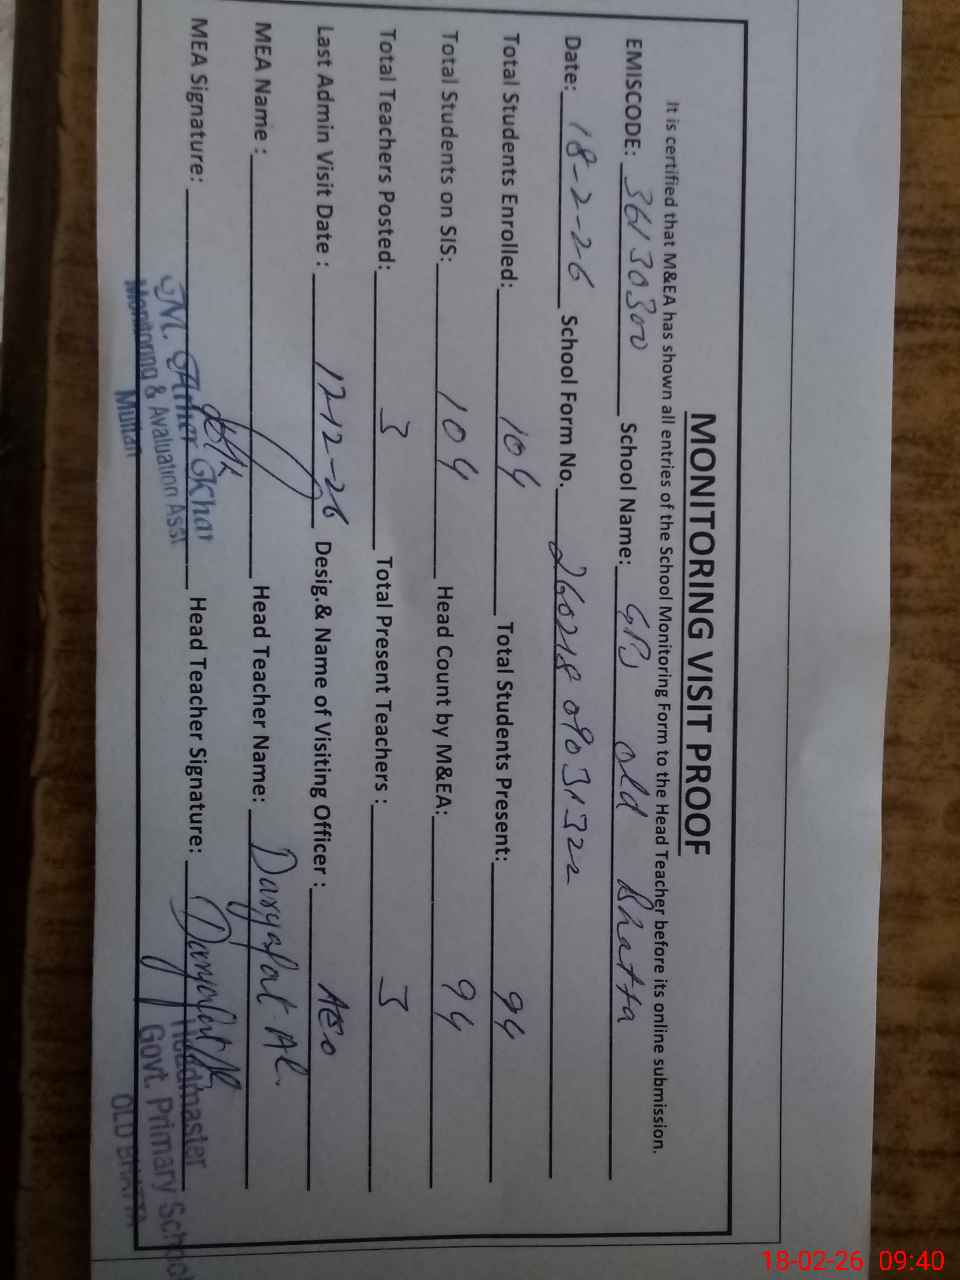 MONITORING VISIT PROOF
It is certified that M&EA has shown all entries of the School Monitoring Form to the Head Teacher before its online submission.
EMISCODE: 36130300 School Name: GPS old Bhatta
Date: 18-2-26 School Form No. 260218 09031322
Total Students Enrolled: 104 Total Students Present: 94
Total Students on SIS: 104 Head Count by M&EA: 94
Total Teachers Posted: 3 Total Present Teachers : 3
Last Admin Visit Date : 12-12-26 Desig.& Name of Visiting Officer : AEO
MEA Name : Head Teacher Name: Daryafat Al.
MEA Signature: Head Teacher Signature:
Monitoring & Avaluation Asst
Multan
Headmaster
Govt. Primary School
OLD BHATTA
18-02-26 09:40